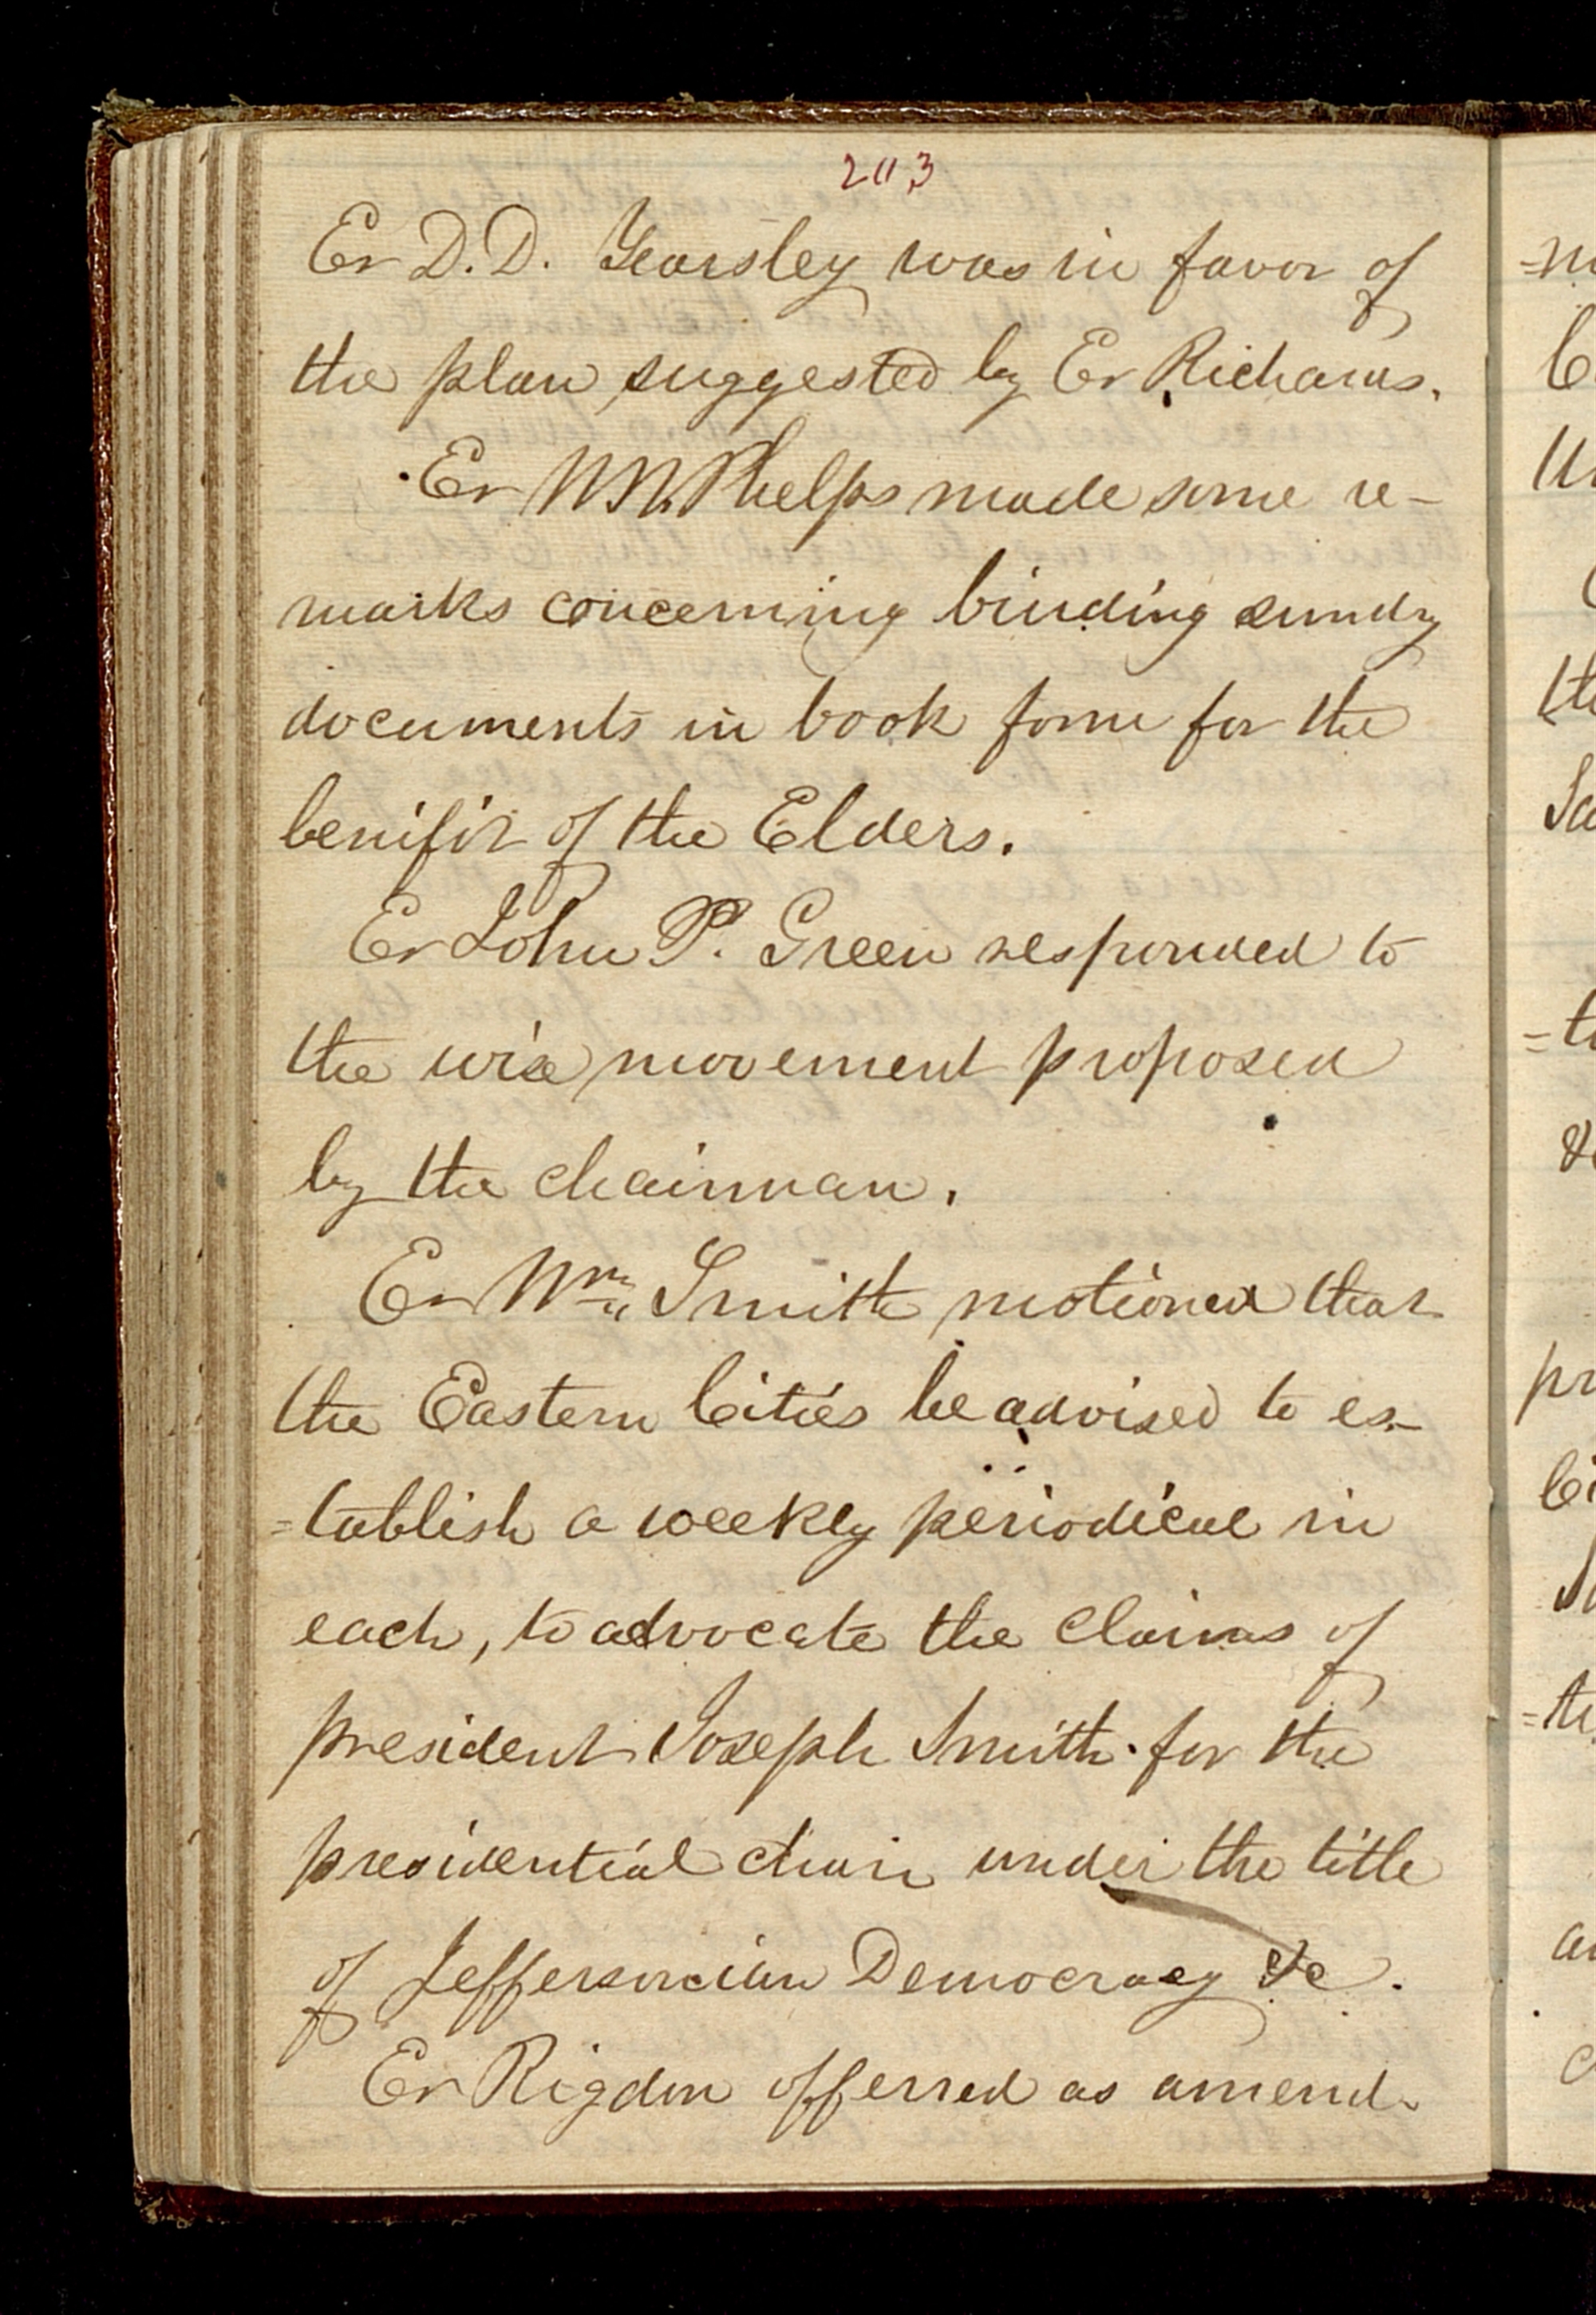 203
Er D.D. Yearsley was in favor of
the plan suggested by Er Richards.
Er W.W. Phelps made some re-
marks concerning binding sundry
documents in book form for the
benifit of the Elders.
Er John P. Green responded to
the wise movement proposed
by the chairman.
Er Wm. Smith motioned that
the Eastern Cities be advised to es-
=tablish a weekly periodical in
each, to advocate the claims of
president Joseph Smith for the
presidential chair under the title
of Jeffersonian Democracy &c.
Er Rigdon offerred as amend-